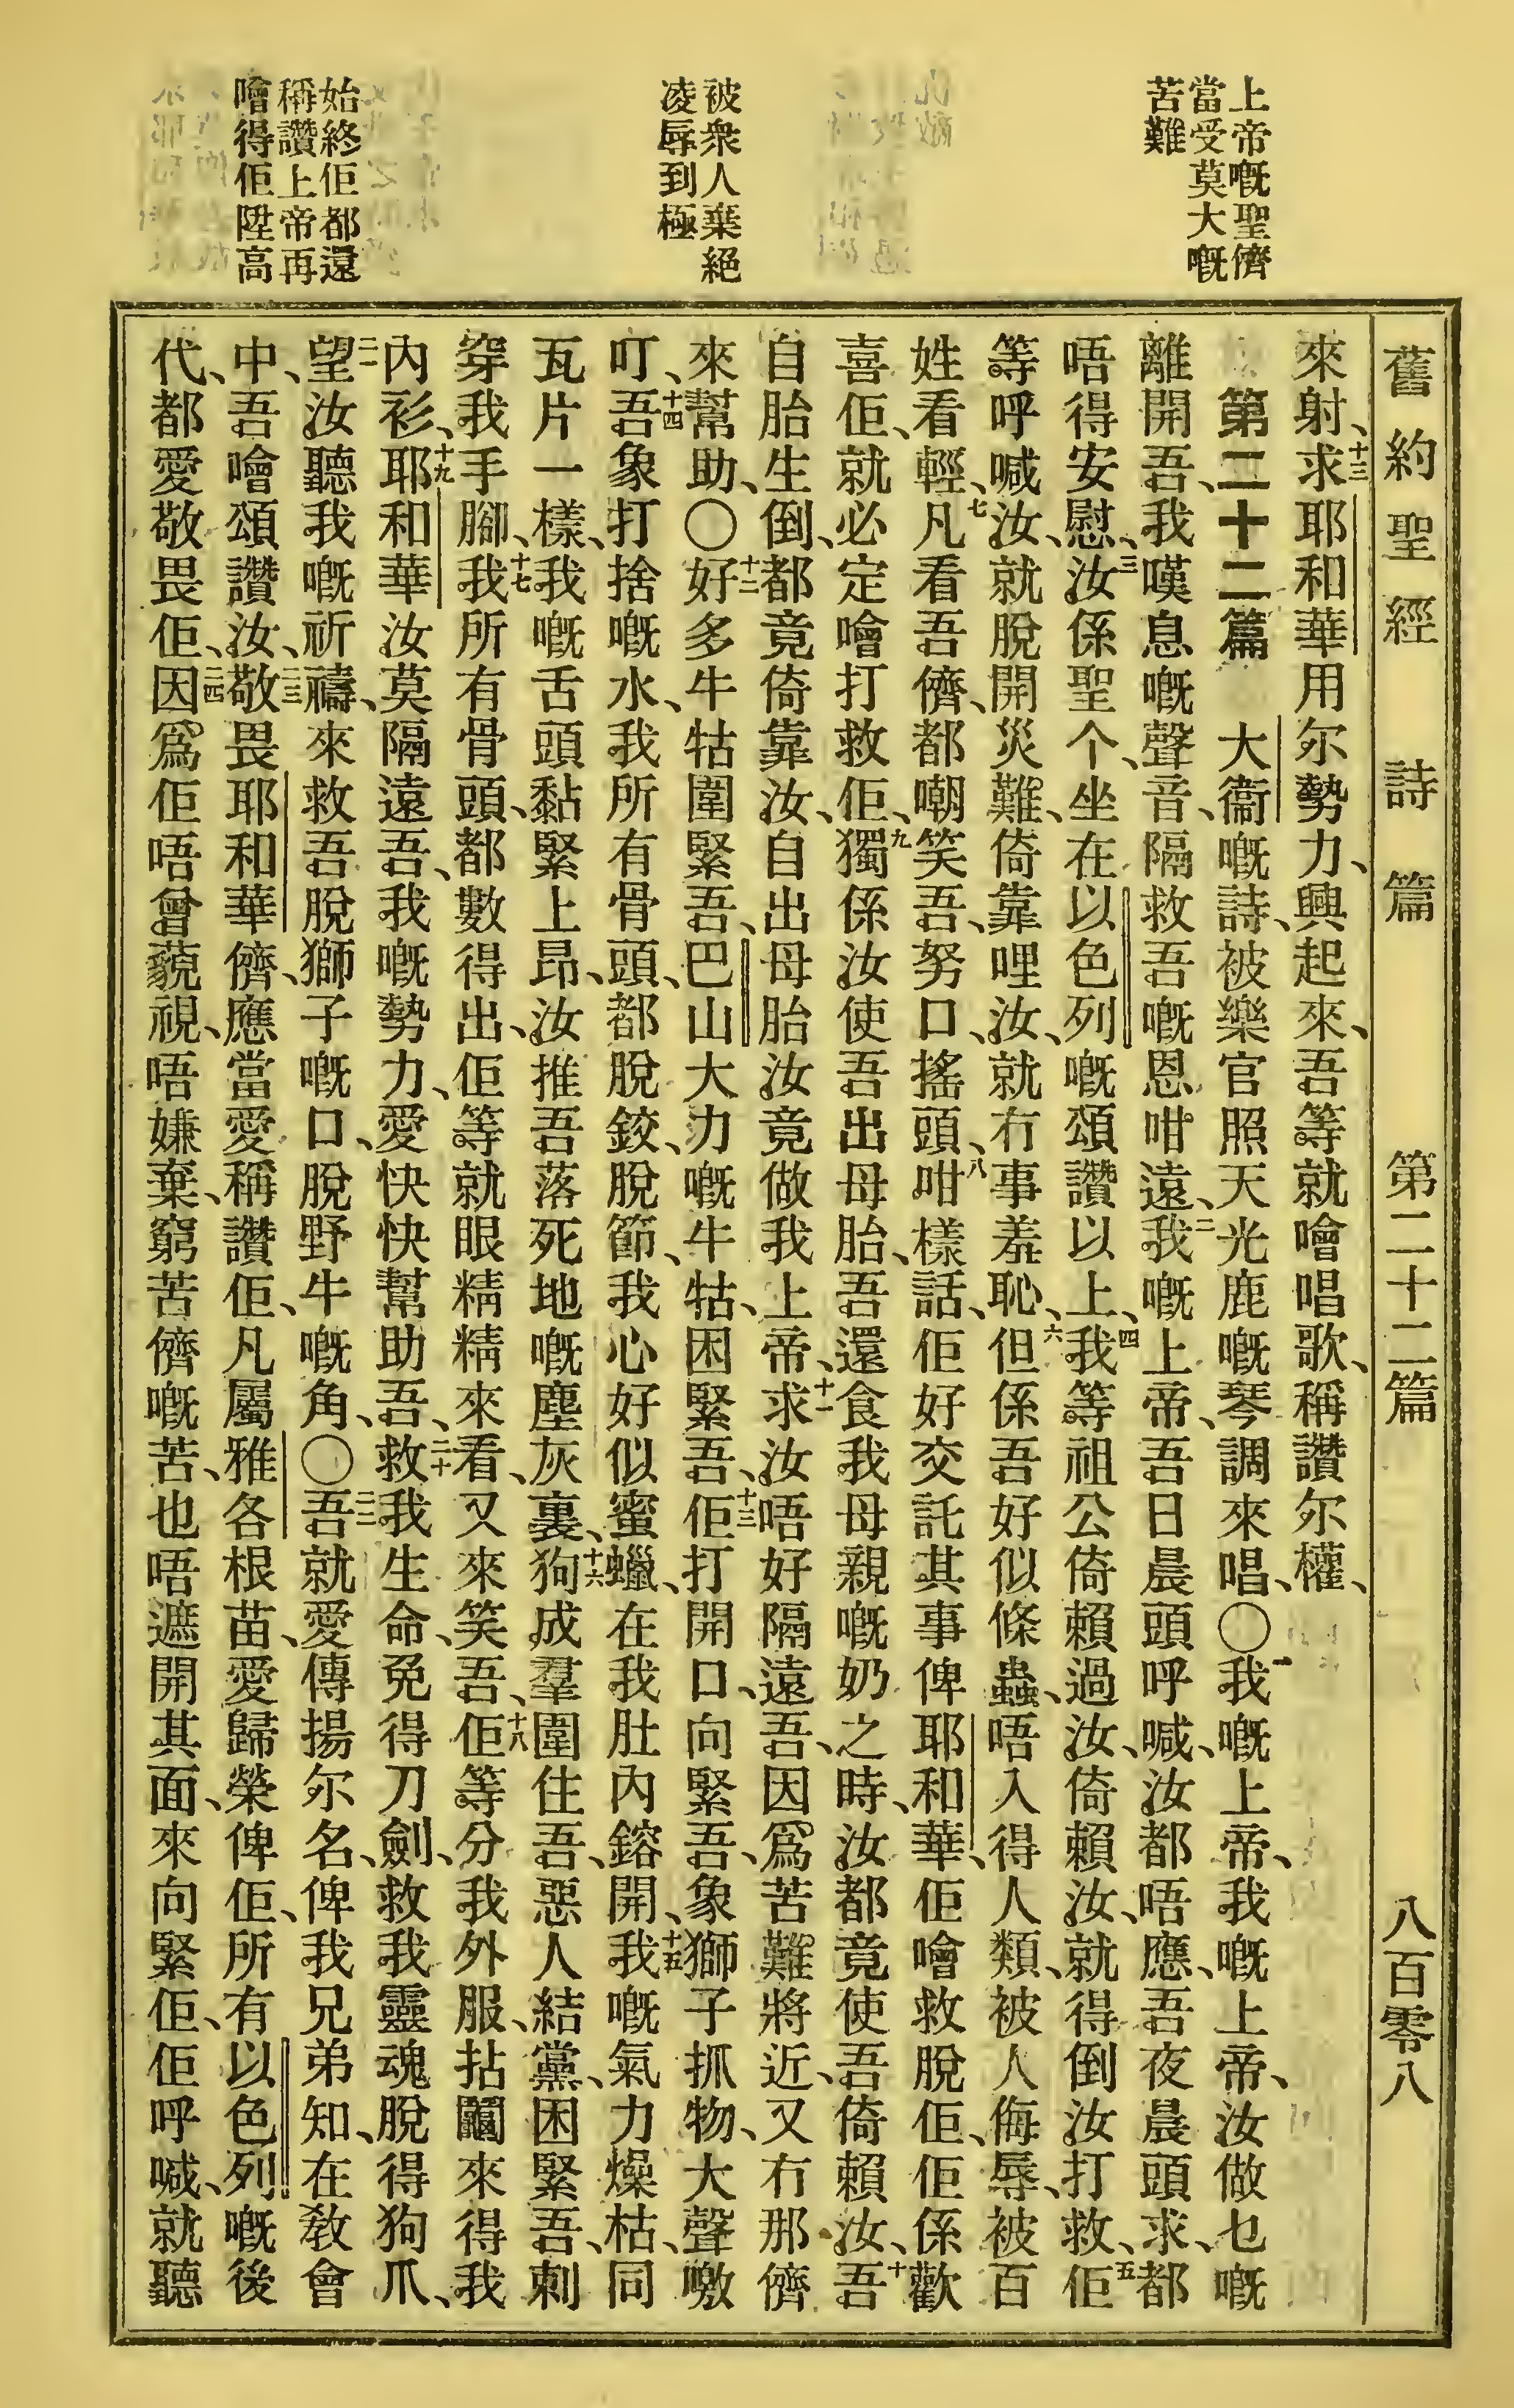 舊約聖經 詩篇 第二十二篇 八百零八
上帝嘅聖儕
當受莫大嘅
苦難
被衆人棄絕
凌辱到極
始終佢都還
稱讚上帝再
噲得佢陞高
來射、十三求耶和華用尔勢力、興起來、吾等就噲唱歌、稱讚尔權、
第二十二篇 大衞嘅詩、被樂官照天光鹿嘅琴調來唱、〇一我嘅上帝、我嘅上帝、汝做乜嘅
離開吾、我嘆息嘅聲音、隔救吾嘅恩咁遠、二我嘅上帝、吾日晨頭呼喊、汝都唔應、吾夜晨頭求、都
唔得安慰、三汝係聖个、坐在以色列嘅頌讚以上、四我等祖公倚賴過汝、倚賴汝、就得倒汝打救、五佢
等呼喊汝、就脫開災難、倚靠哩汝、就冇事羞恥、六但係吾好似條蟲、唔入得人類、被人侮辱、被百
姓看輕、七凡看吾儕、都嘲笑吾、努口、搖頭、八咁樣話、佢好交託其事俾耶和華、佢噲救脫佢、佢係歡
喜佢、就必定噲打救佢、九獨係汝使吾出母胎、吾還食我母親嘅奶之時、汝都竟使吾倚賴汝、十吾
自胎生倒、都竟倚靠汝、自出母胎汝竟做我上帝、十一求汝唔好隔遠吾、因爲苦難將近、又冇那儕
來幫助、〇十二好多牛牯圍緊吾、巴山大力嘅牛牯、困緊吾、十三佢打開口、向緊吾、象獅子抓物、大聲噭
叮、十四吾象打捨嘅水、我所有骨頭、都脫鉸、脫節、我心好似蜜蠟、在我肚內鎔開、十五我嘅氣力燥枯、同
瓦片一樣、我嘅舌頭黏緊上昂、汝推吾落死地嘅塵灰裏、十六狗成羣圍住吾、惡人結黨、困緊吾、刺
穿我手腳、十七我所有骨頭、都數得出、佢等就眼精精來看、又來笑吾、十八佢等分我外服、拈鬮來得我
內衫、十九耶和華汝莫隔遠吾、我嘅勢力、愛快快幫助吾、二十救我生命、免得刀劍、救我靈魂脫得狗爪、
二一望汝聽我嘅祈禱、來救吾脫獅子嘅口、脫野牛嘅角、〇二二吾就愛傳揚尔名、俾我兄弟知、在敎會
中、吾噲頌讚汝、二三敬畏耶和華儕、應當愛稱讚佢、凡屬雅各根苗、愛歸榮俾佢、所有以色列嘅後
代、都愛敬畏佢、二四因爲佢唔曾藐視、唔嫌棄、窮苦儕嘅苦、也唔遮開其面、來向緊佢、佢呼喊、就聽